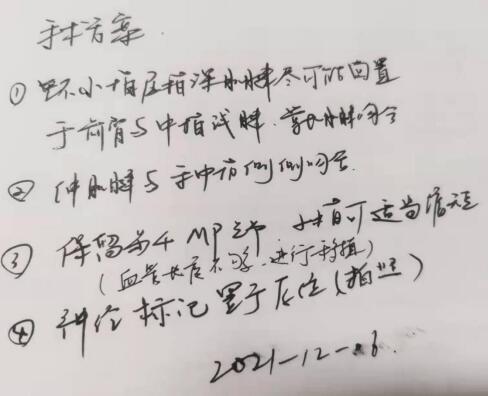 手术方案
① 环小指屈指深肌腱尽可能回置
于前臂与中指浅腱、掌长肌腱吻合
② 伸肌腱与手中指侧侧吻合
③ 保留第4 MP关节 小指可适当缩短
(血管长度不够、进行移植)
④ 神经标记置于原位(拍照)
2021-12-06.